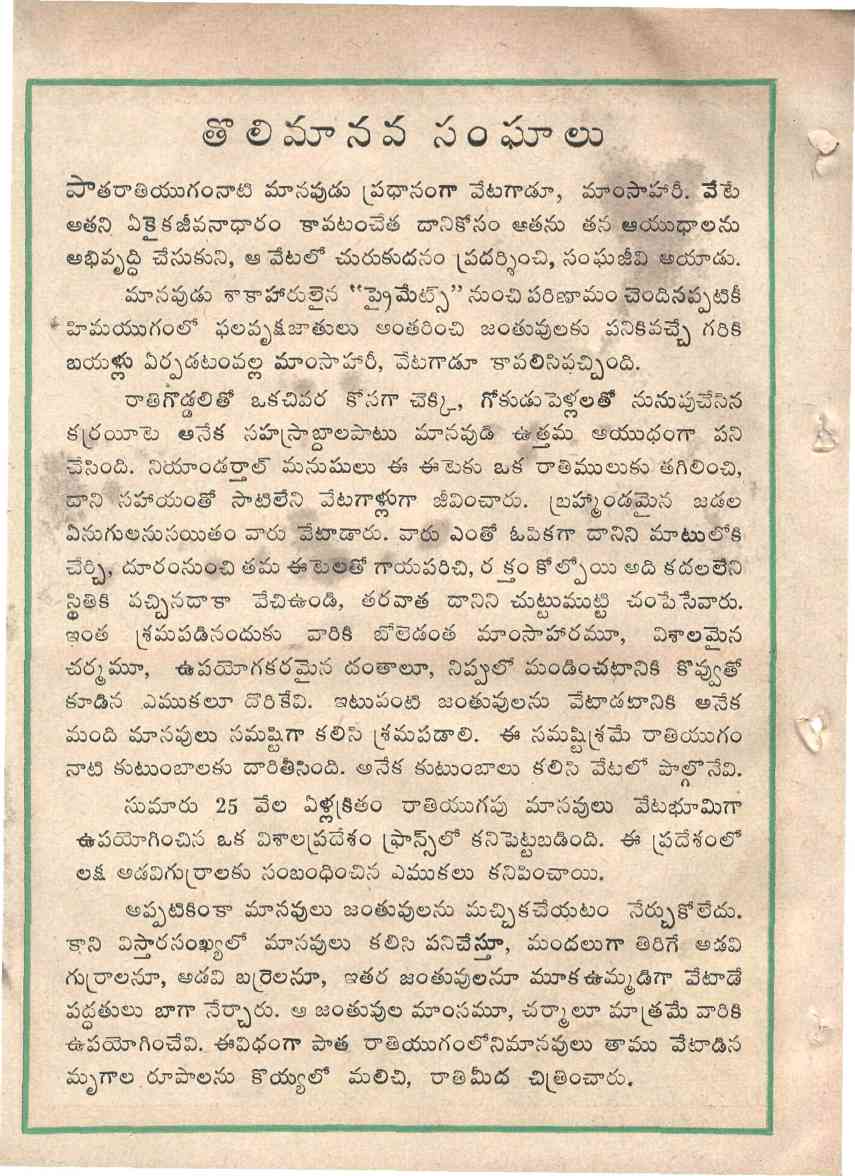 తొలిమానవ సంఘాలు
పాతరాతియుగంనాటి మానవుడు ప్రధానంగా వేటగాడూ, మాంసాహారీ. వేటే
అతని ఏకైకజీవనాధారం కావటంచేత దానికోసం అతను తన ఆయుధాలను
అభివృద్ధి చేసుకుని, ఆ వేటలో చురుకుదనం ప్రదర్శించి, సంఘజీవి అయాడు.
మానవుడు శాకాహారులైన “ప్రైమేట్స్” నుంచి పరిణామం చెందినప్పటికీ
హిమయుగంలో ఫలవృక్షజాతులు అంతరించి జంతువులకు పనికివచ్చే గరికి
బయళ్లు ఏర్పడటంవల్ల మాంసాహారీ, వేటగాడూ కావలిసివచ్చింది.
రాతిగొడ్డలితో ఒకచివర కోసగా చెక్కి, గోకుడుపెళ్లలతో నునుపుచేసిన
కర్రయీటె అనేక సహస్రాబ్దాలపాటు మానవుడి ఉత్తమ ఆయుధంగా పని
చేసింది. నియాండర్తాల్ మనుషులు ఈ ఈటెకు ఒక రాతిములుకు తగిలించి,
దాని సహాయంతో సాటిలేని వేటగాళ్లుగా జీవించారు. బ్రహ్మాండమైన జడల
ఏనుగులనుసయితం వారు వేటాడారు. వారు ఎంతో ఓపికగా దానిని మాటులోకి
చేర్చి, దూరంనుంచి తమ ఈటెలతో గాయపరిచి, రక్తం కోల్పోయి అది కదలలేని
స్థితికి వచ్చినదాకా వేచిఉండి, తరవాత దానిని చుట్టుముట్టి చంపేసేవారు.
ఇంత శ్రమపడినందుకు వారికి బోలెడంత మాంసాహారమూ, విశాలమైన
చర్మమూ, ఉపయోగకరమైన దంతాలూ, నిప్పులో మండించటానికి కొవ్వుతో
కూడిన ఎముకలూ దొరికేవి. ఇటువంటి జంతువులను వేటాడటానికి అనేక
మంది మానవులు సమష్టిగా కలిసి శ్రమపడాలి. ఈ సమష్టిశ్రమే రాతియుగం
నాటి కుటుంబాలకు దారితీసింది. అనేక కుటుంబాలు కలిసి వేటలో పాల్గొనేవి.
సుమారు 25 వేల ఏళ్లక్రితం రాతియుగపు మానవులు వేటభూమిగా
ఉపయోగించిన ఒక విశాలప్రదేశం ఫ్రాన్స్‌లో కనిపెట్టబడింది. ఈ ప్రదేశంలో
లక్ష అడవిగుర్రాలకు సంబంధించిన ఎముకలు కనిపించాయి.
అప్పటికింకా మానవులు జంతువులను మచ్చికచేయటం నేర్చుకోలేదు.
కాని విస్తారసంఖ్యలో మానవులు కలిసి పనిచేస్తూ, మందలుగా తిరిగే అడవి
గుర్రాలనూ, అడవి బర్రెలనూ, ఇతర జంతువులనూ మూకఉమ్మడిగా వేటాడే
పద్ధతులు బాగా నేర్చారు. ఆ జంతువుల మాంసమూ, చర్మాలూ మాత్రమే వారికి
ఉపయోగించేవి. ఈవిధంగా పాత రాతియుగంలోనిమానవులు తాము వేటాడిన
మృగాల రూపాలను కొయ్యలో మలిచి, రాతిమీద చిత్రించారు.